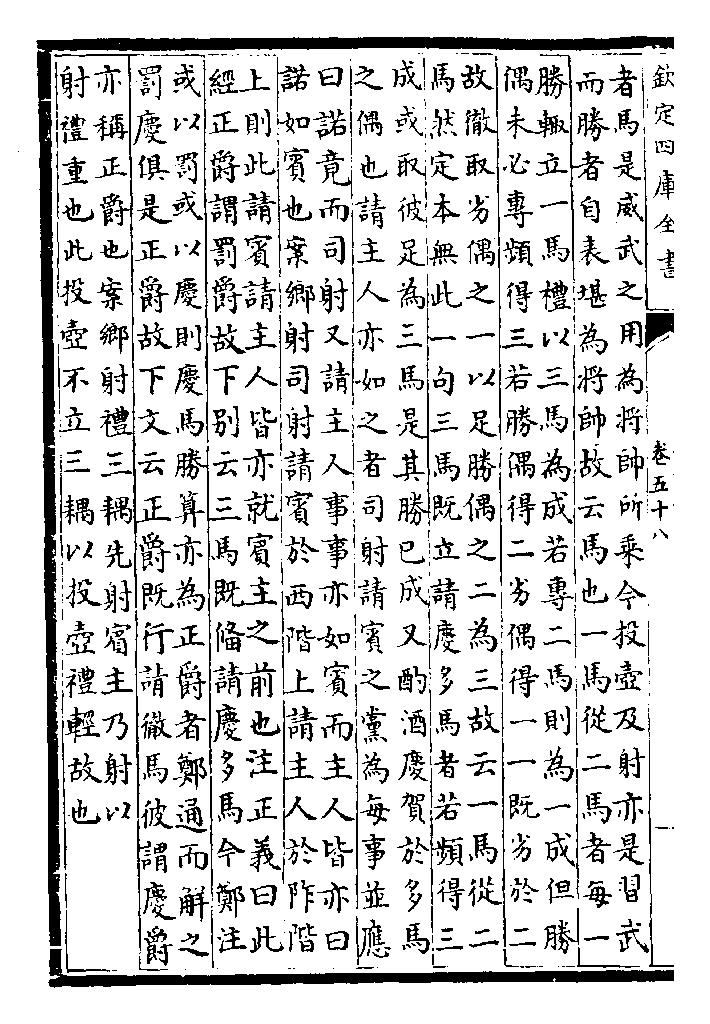 欽定四庫全書
卷五十八
者馬是威武之用為將帥所乘今投壺及射亦是習武
而勝者自表堪為將帥故云馬也一馬從二馬者每一
勝輙立一馬禮以三馬為成若專二馬則為一成但勝
偶未必專頻得三若勝偶得二劣偶得一一既劣於二
故徹取劣偶之一以足勝偶之二為三故云一馬從二
馬然定本無此一句三馬既立請慶多馬者若頻得三
成或取彼足為三馬是其勝已成又酌酒慶賀於多馬
之偶也請主人亦如之者司射請賓之黨為每事並應
曰諾竟而司射又請主人事事亦如賓而主人皆亦曰
諾如賓也案鄉射司射請賓於西階上請主人於阼階
上則此請賓請主人皆亦就賓主之前也注正義曰此
經正爵謂罰爵故下别云三馬既備請慶多馬今鄭注
或以罰或以慶則慶馬勝算亦為正爵者鄭通而解之
罰慶俱是正爵故下文云正爵既行請徹馬彼謂慶爵
亦稱正爵也案鄉射禮三耦先射賓主乃射以
射禮重也此投壺不立三耦以投壺禮輕故也